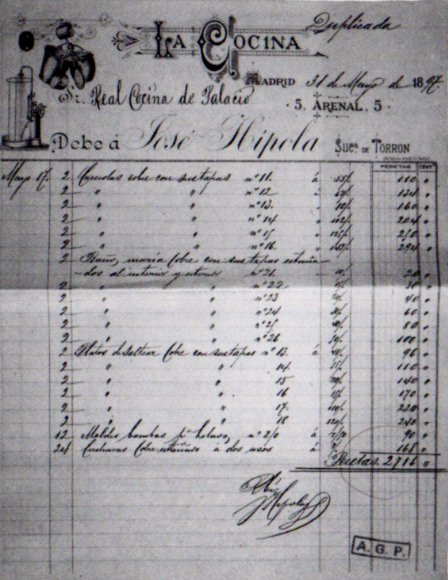 Duplicada
LA COCINA
MADRID 31 de Mayo de 1897
Sr. Real Cocina de Palacio
5. ARENAL, 5.
Debe á José Hipola Sucr. DE TORRON
PESETAS CENT
Mayo 17. 2 Cacerolas cobre con sus tapas nº 11. á 55 110 "
2 " " nº 12. 67 134 "
2 " " nº 13. 80 160 "
2 " " nº 14 102 204 "
2 " " nº 15 125 250 "
2 " " nº 16. 147 294 "
2 Baño, maria Cobre con sus tapas estaña-
dos al interior y esterior nº 21. á 20 "
2 " " nº 22 30 "
2 " " nº 23 40 "
2 " " nº 24 60 "
2 " " nº 25 80 "
2 " " nº 26 100 "
2 Platos de Saltear Cobre con sus tapas nº 13. á 48 96 "
2 " " 14. 55 110 "
2 " " 15 70 140 "
2 " " 16 85 170 "
2 " " 17. 110 220 "
2 " " 18 120 240 "
12 Moldes bombas pª helados, nº 2/0 á 90 "
24 Cucharas Cobre á dos usos á 168 "
Pesetas. 2716 "
Hipola
A.G.P.